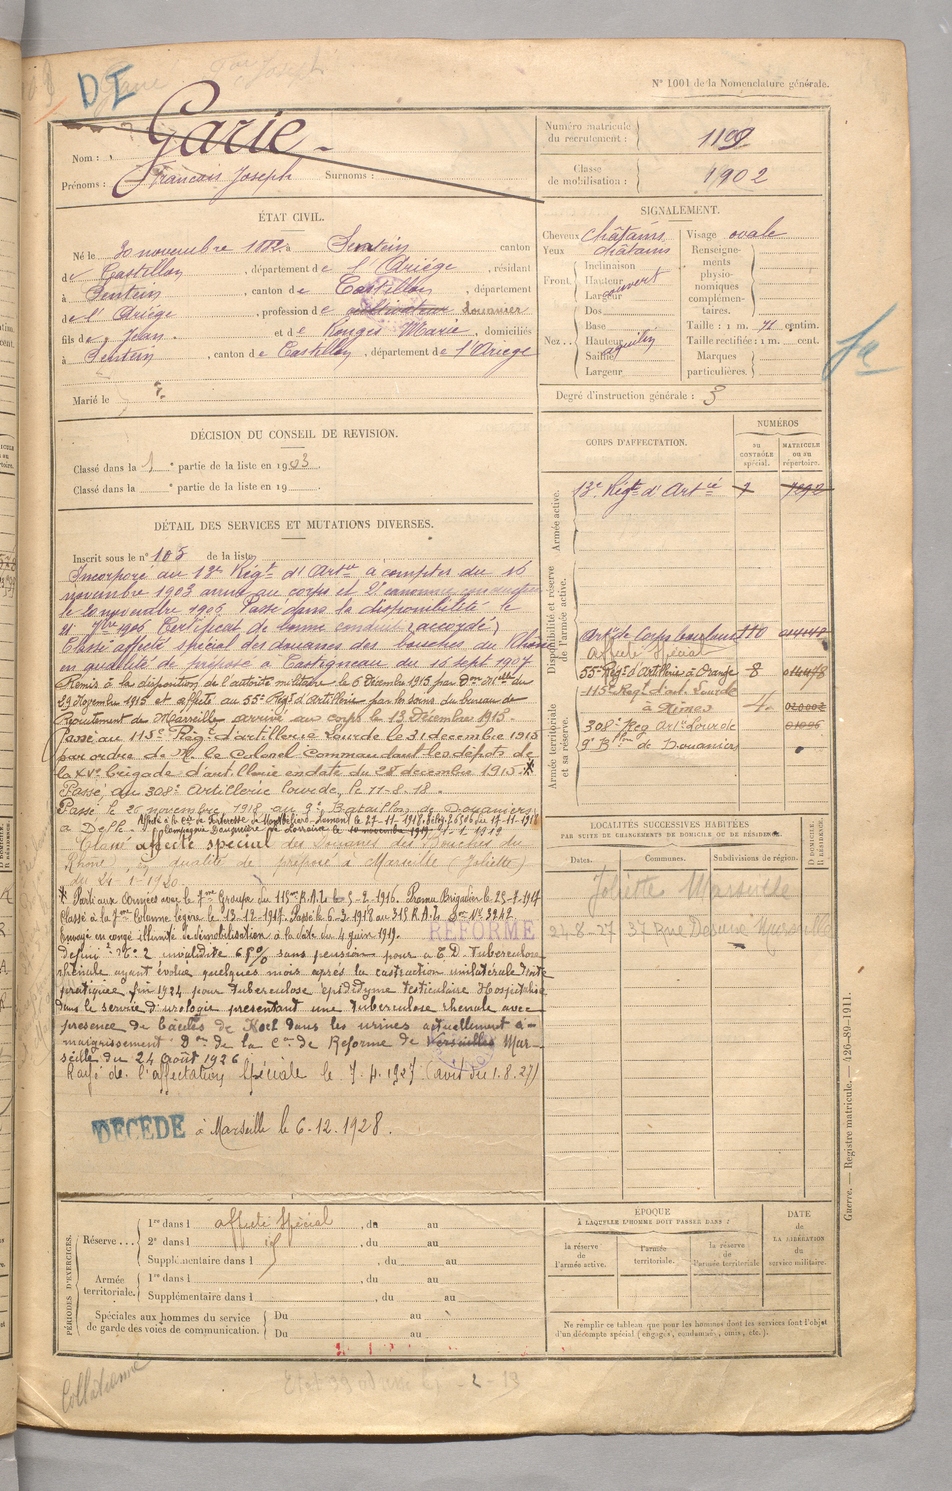 DI
N° 1001 de la Nomenclature générale.
Nom : Garie
Prénoms : Francois Joseph Surnoms :
Numéro matricule du recrutement :
Classe de mobilisation : 1902
ÉTAT CIVIL.
Né le 20 novembre 1882 à Sentein canton
de Castillon, département de l'Ariége, résidant
à Sentein, canton de Castillon, département
de l'Ariége, profession de cultivateur Douanier
fils de Jean et de Rougé Marie, domiciliés
à Sentein, canton de Castillon, département de l'Ariége
Marié le
SIGNALEMENT.
Cheveux châtains Visage ovale
Yeux châtains
Front Inclinaison Hauteur Largeur ouvert
Nez Dos Base Hauteur Saillie Largeur aquilin
Renseignements physionomiques complémentaires.
Taille : 1 m. 71 centim.
Taille rectifiée : 1 m. cent.
Marques particulières.
Degré d'instruction générale : 3
DÉCISION DU CONSEIL DE REVISION.
Classé dans la 1 e partie de la liste en 1903.
Classé dans la e partie de la liste en 19
DÉTAIL DES SERVICES ET MUTATIONS DIVERSES.
Inscrit sous le n° 105 de la liste
Incorporé au 13e Régt d'Artie à compter du 16
novembre 1903 arrivé au corps et 2e canonnier
le 20 novembre 1903. Passé dans la disponibilité le
1906 Certificat de bonne conduite accordé
Classé affecté spécial des douanes des bouches du Rhône
en qualité de préposé à Castigneau du 16 sept 1907
Remis à la disposition de l'autorité militaire le 6 Décembre 1915 par Don Mlle du
29 Novembre 1915 et affecté au 55e Régt d'Artillerie par les soins du bureau de
recrutement de Marseille arrivé au corps le 13 Décembre 1915.
Passé au 115e Régt d'artillerie Lourde le 31 decembre 1915
par ordre de M. le Colonel commandant les dépots de
la XVe brigade d'artillerie en date du 28 decembre 1915. *
Passé au 308e Artillerie lourde, le 11-8-18.
Passé le 26 novembre 1918 au 9e Bataillon de Douaniers
à Delle.
Classé affecté spécial des Douanes des Bouches du
Rhône en qualité de préposé à Marseille (Joliette)
du 24-1-1920
* Parti aux Armées avec le 7me Groupe du 115me R.A.L le 5-2-1916. Promu Brigadier le 25-7-1917
Classé à la 7me Colonne légère le 13-12-1917. Passé le 6-3-1918 au 318 R.A.L Don No 3242
Envoyé en congé illimité de démobilisation à la date du 4 juin 1919.
REFORME
Définit N° 2 invalidité 65% sans pension pour a T.D. Tuberculose
rhénale ayant évolué quelques mois après la castration unilatérale Dnte
pratiquée fin 1924 pour tuberculose épididyme testiculaire Hospitalisé
dans le service d'urologie présentant une tuberculose rhenale avec
presence de bacilles de Koch dans les urines actuellement a-
maigrissement Don de la Con de Reforme de Versailles Mar-
seille du 24 Août 1926
Rayé de l'affectation Spéciale le 7.4.1927 (avis du 1.8.27)
DECEDE à Marseille le 6-12-1928.
CORPS D'AFFECTATION.
NUMÉROS
au CONTRÔLE spécial.
MATRICULE ou au répertoire.
Armée active.
13e Régt d'Artie
Disponibilité et réserve de l'armée active.
Affecté Spécial
55e Régt d'Artillerie à Orange 8
115e Régt d'art. Lourde à Nîmes
Armée territoriale et sa réserve.
308e Reg Artie Lourde
9e Blon de Douaniers
LOCALITÉS SUCCESSIVES HABITÉES
PAR SUITE DE CHANGEMENTS DE DOMICILE OU DE RÉSIDENCE.
Dates. Communes. Subdivisions de région. D DOMICILE. R RÉSIDENCE.
Joliette Marseille
24-8-27 37 Rue Désirée
PÉRIODES D'EXERCICES.
Réserve
1re dans l affecté Spécial, du au
2e dans l, du au
Supplémentaire dans l, du au
Armée territoriale.
1re dans l, du au
Supplémentaire dans l, du au
Spéciales aux hommes du service de garde des voies de communication.
Du au
Du au
ÉPOQUE
À LAQUELLE L'HOMME DOIT PASSER DANS :
la réserve de l'armée active.
l'armée territoriale.
la réserve de l'armée territoriale
DATE de LA LIBÉRATION du service militaire.
Ne remplir ce tableau que pour les hommes dont les services font l'objet
d'un décompte spécial (engagés, condamnés, omis, etc.).
Guerre. — Registre matricule. — 426-89-1911.
Collationné